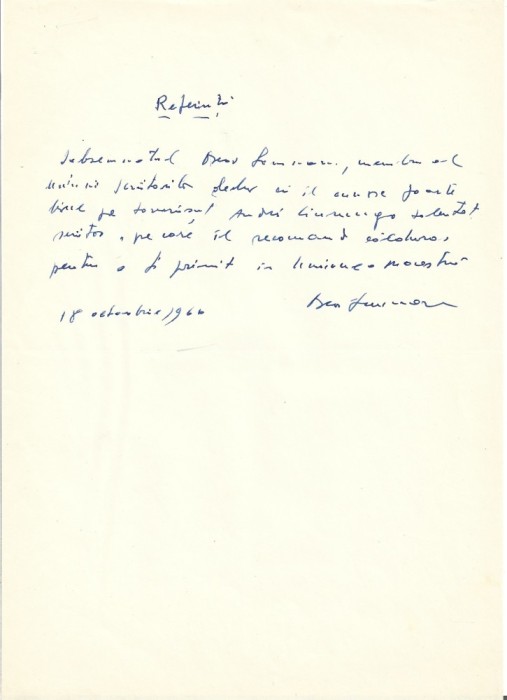 Referință
Subsemnatul , membru al
Uniunii Scriitorilor declar că îl cunosc foarte
bine pe tovarășul Andrei talentat
scriitor, pe care îl recomand călduros,
pentru a fi primit în Uniunea noastră
18 octombrie, 196